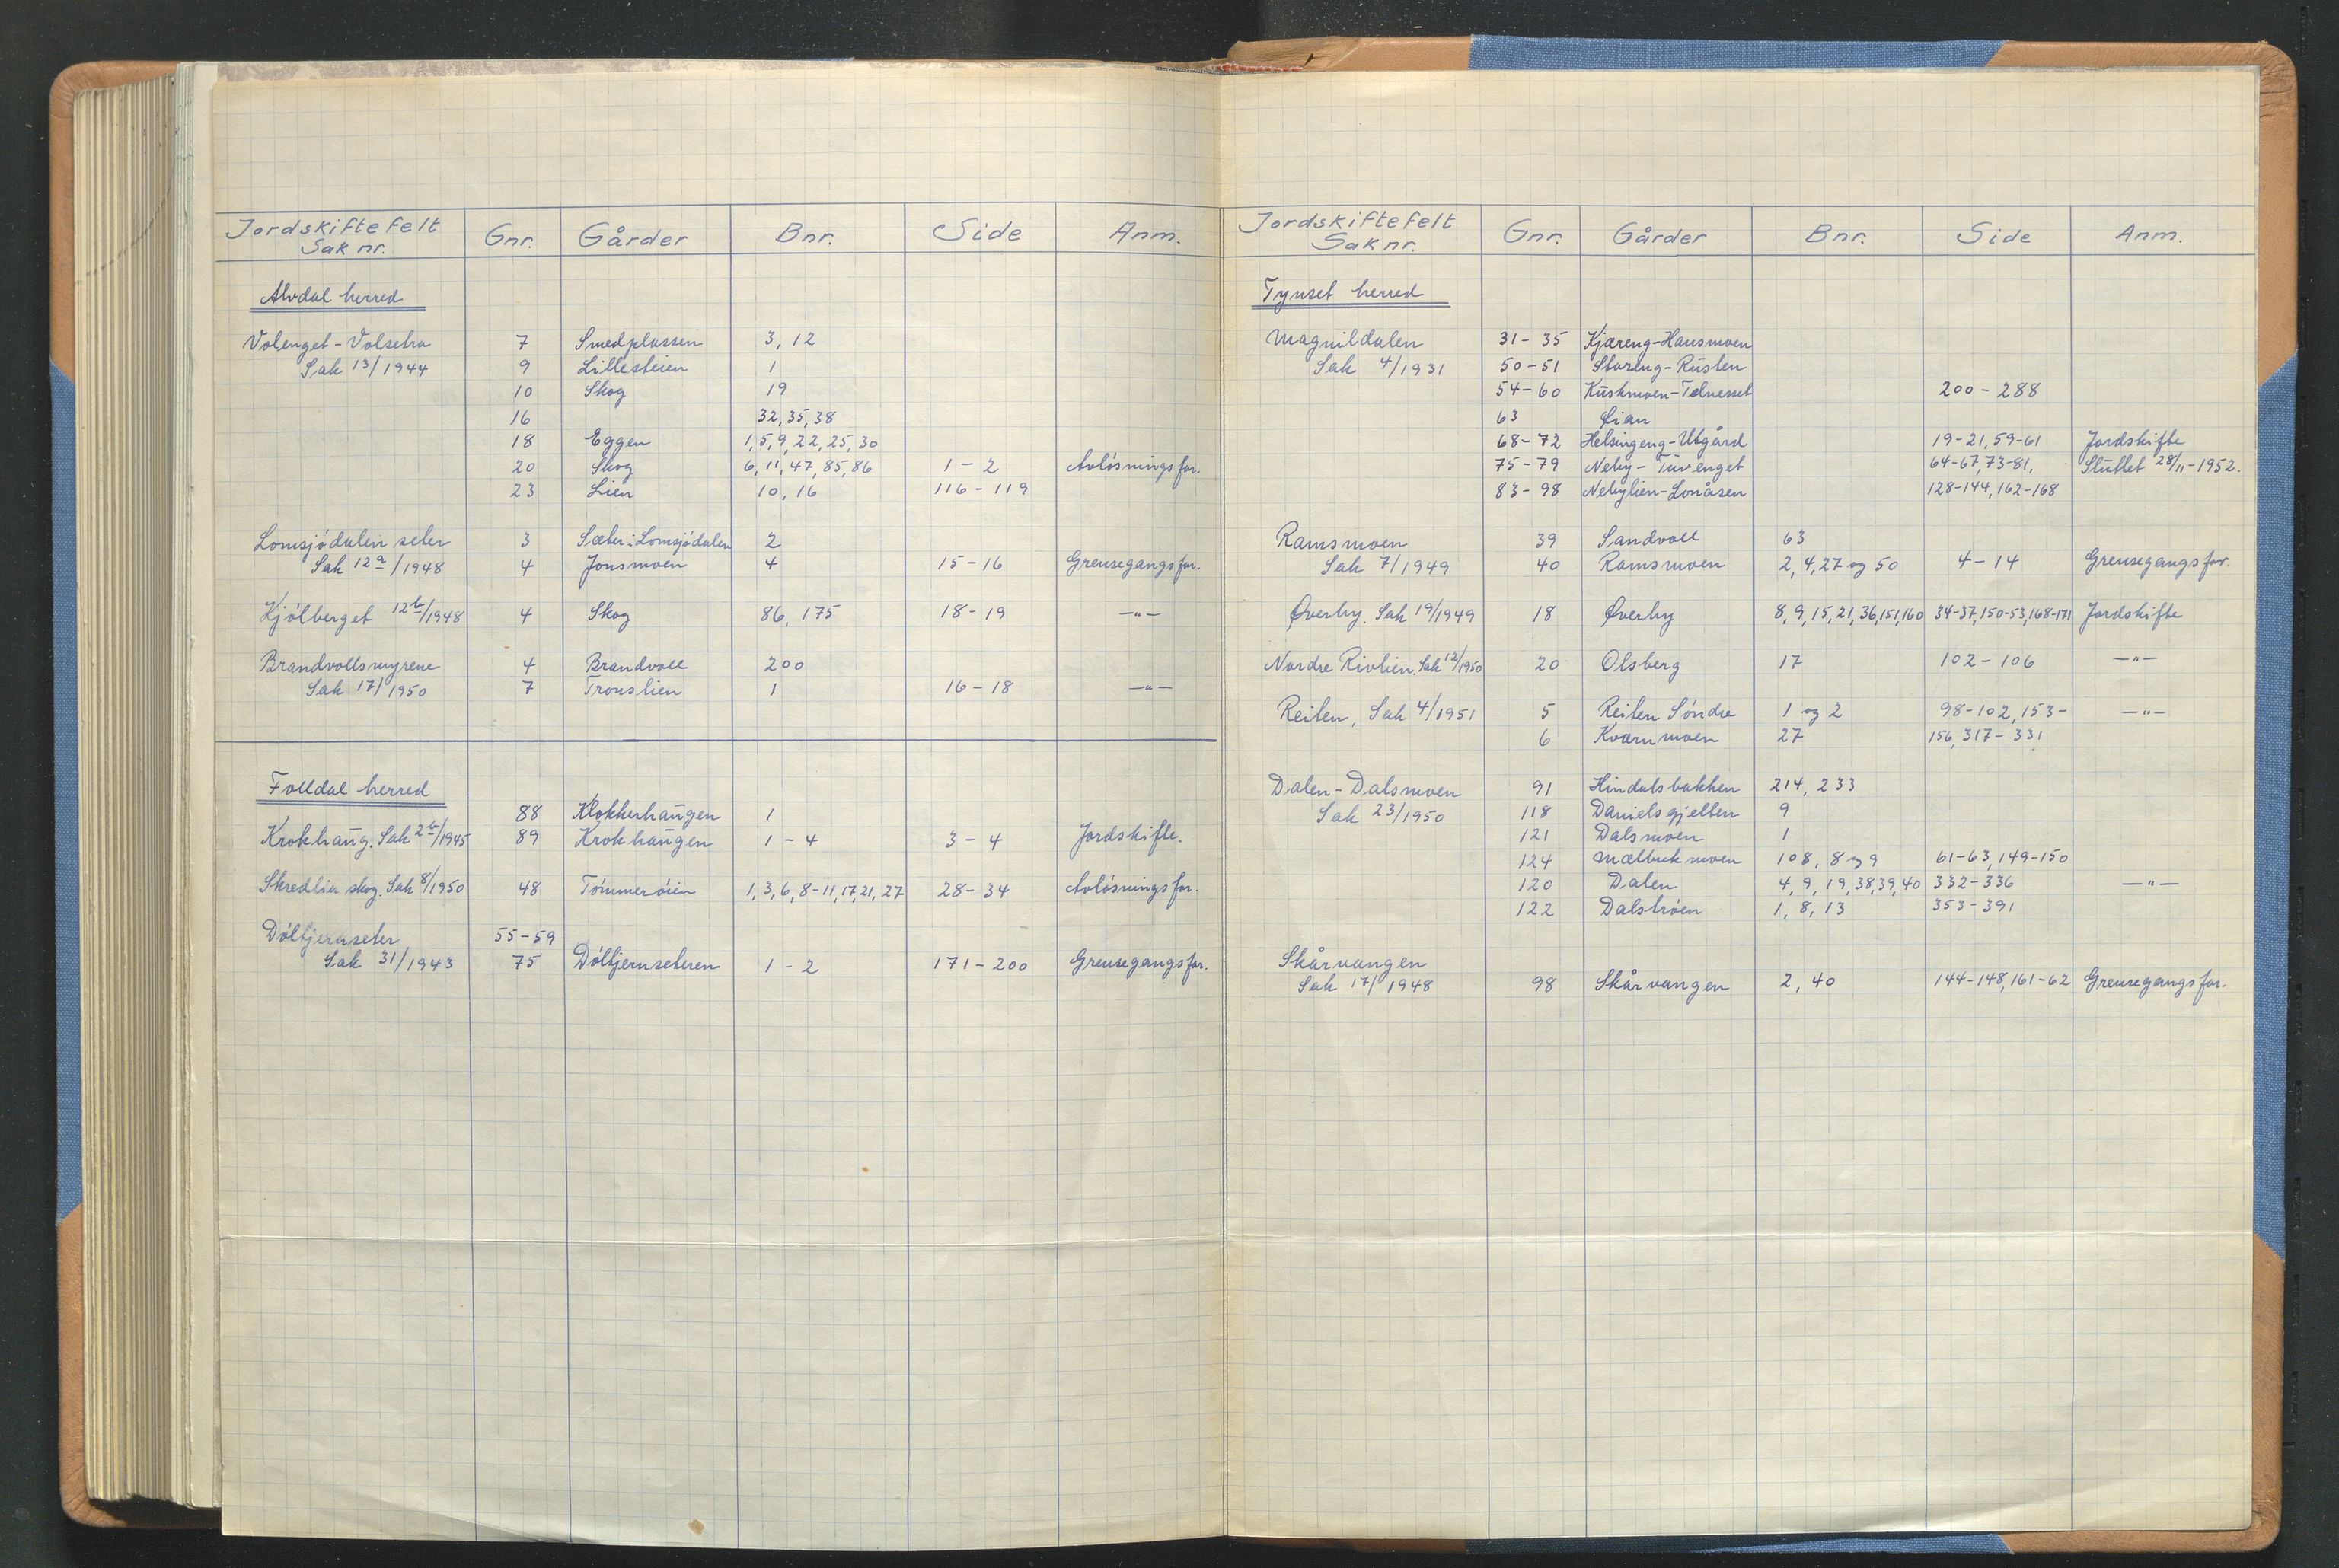 Jordskiftefelt Sak nr. Gnr. Gårder Bnr. Side Anm.
Alvdal herred
Volenget-Volsetra 7 Smedplassen 3, 12
Sak 13/1944 9 Lillesteien 1
10 Skog 19
16 32, 35, 38
18 Eggen 1, 5, 9, 22, 25, 30
20 Skog 6, 11, 47, 85, 86 1-2 Avløsningsfor.
23 Lien 10, 16 116-119
Lomsjødalen seter 3 Sæter i Lomsjødalen 2
Sak 12a/1948 4 Jonsmoen 4 15-16 Grensegangsfor.
Kjølberget 12b/1948 4 Skog 86, 175 18-19 —"—
Brandvollsmyrene 4 Brandvoll 200
Sak 17/1950 7 Tronslien 1 16-18 —"—
Folldal herred
88 Klokkerhaugen 1
Krokhaug. Sak 2b/1945 89 Krokhaugen 1-4 3-4 Jordskifte.
Skredlia skog. Sak 8/1950 48 Tømmerøien 1, 3, 6, 8-11, 17, 21, 27 28-34 Avløsningsfor.
Døltjernseter 55-59
Sak 31/1943 75 Døltjernseteren 1-2 171-200 Grensegangsfor.
Jordskiftefelt Sak nr. Gnr. Gårder Bnr. Side Anm.
Tynset herred
Magnildalen 31-35 Kjæreng-Hansmoen
Sak 4/1931 50-51 Storeng-Rusten
54-60 Kuskmoen-Telnesset 200-288
63 Øian
68-72 Helsingeng-Utgård 19-21, 59-61 Jordskifte
75-79 Neby-Tuvenget 64-67, 73-81, Sluttet 28/11-1952.
83-98 Nebylien-Lonåsen 128-144, 162-168
Ramsmoen 39 Sandvoll 63
Sak 7/1949 40 Ramsmoen 2, 4, 27 og 50 4-14 Grensegangsfor.
Øverby. Sak 19/1949 18 Øverby 8, 9, 15, 21, 36, 151, 160 34-37, 150-53, 168-171 Jordskifte
Nordre Rivlien. Sak 12/1950 20 Olsberg 17 102-106 —"—
Reiten, Sak 4/1951 5 Reiten Søndre 1 og 2 98-102, 153- —"—
6 Kværnmoen 27 156, 317-331
Dalen-Dalsmoen 91 Hindalsbakken 214, 233
Sak 23/1950 118 Danielsgjelten 9
121 Dalsmoen 1
124 Mælbekmoen 108, 8 og 9 61-63, 149-150
120 Dalen 4, 9, 19, 38, 39, 40 332-336 —"—
122 Dalstrøen 1, 8, 13 353-391
Skårvangen
Sak 17/1948 98 Skårvangen 2, 40 144-148, 161-62 Grensegangsfor.